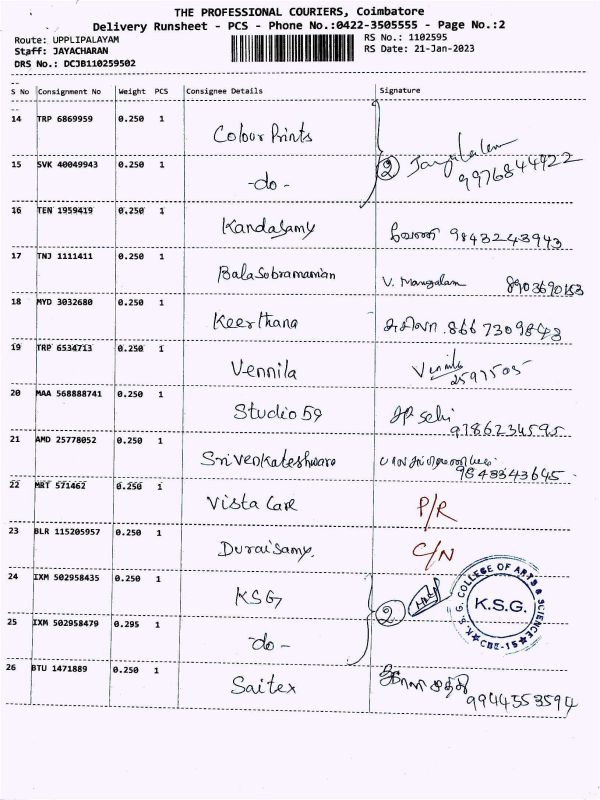 THE PROFESSIONAL COURIERS, Coimbatore
Delivery Runsheet - PCS - Phone No.:0422-3505555 - Page No.:2
Route: UPPLIPALAYAM RS No.: 1102595
Staff: JAYACHARAN RS Date: 21-Jan-2023
DRS No.: DCJB110259502
S No Consignment No Weight PCS Consignee Details Signature
14 TRP 6869959 0.250 1 Colour Prints
2 9976844922
15 SVK 40049943 0.250 1 -do-
16 TEN 1959419 0.250 1 Kandasamy 9843243943
17 TNJ 1111411 0.250 1 Balasubramanian V. Mangalam 8903690153
18 MYD 3032680 0.250 1 Keerthana 8667309843
19 TRP 6534713 0.250 1 Vennila Vennila
2597505
20 MAA 568888741 0.250 1 Studio 59
9786234595
21 AMD 25778052 0.250 1 Srivenkateshwara
9843343645
22 MRT 571462 0.250 1 Vista Care P/R
23 BLR 115205957 0.250 1 Duraisamy. C/N
24 IXM 502958435 0.250 1 KSG 2
K.S.G. COLLEGE OF ARTS & SCIENCE
K.S.G.
CBE-15
25 IXM 502958479 0.295 1 -do-
26 BTU 1471889 0.250 1 Saitex
9944553594